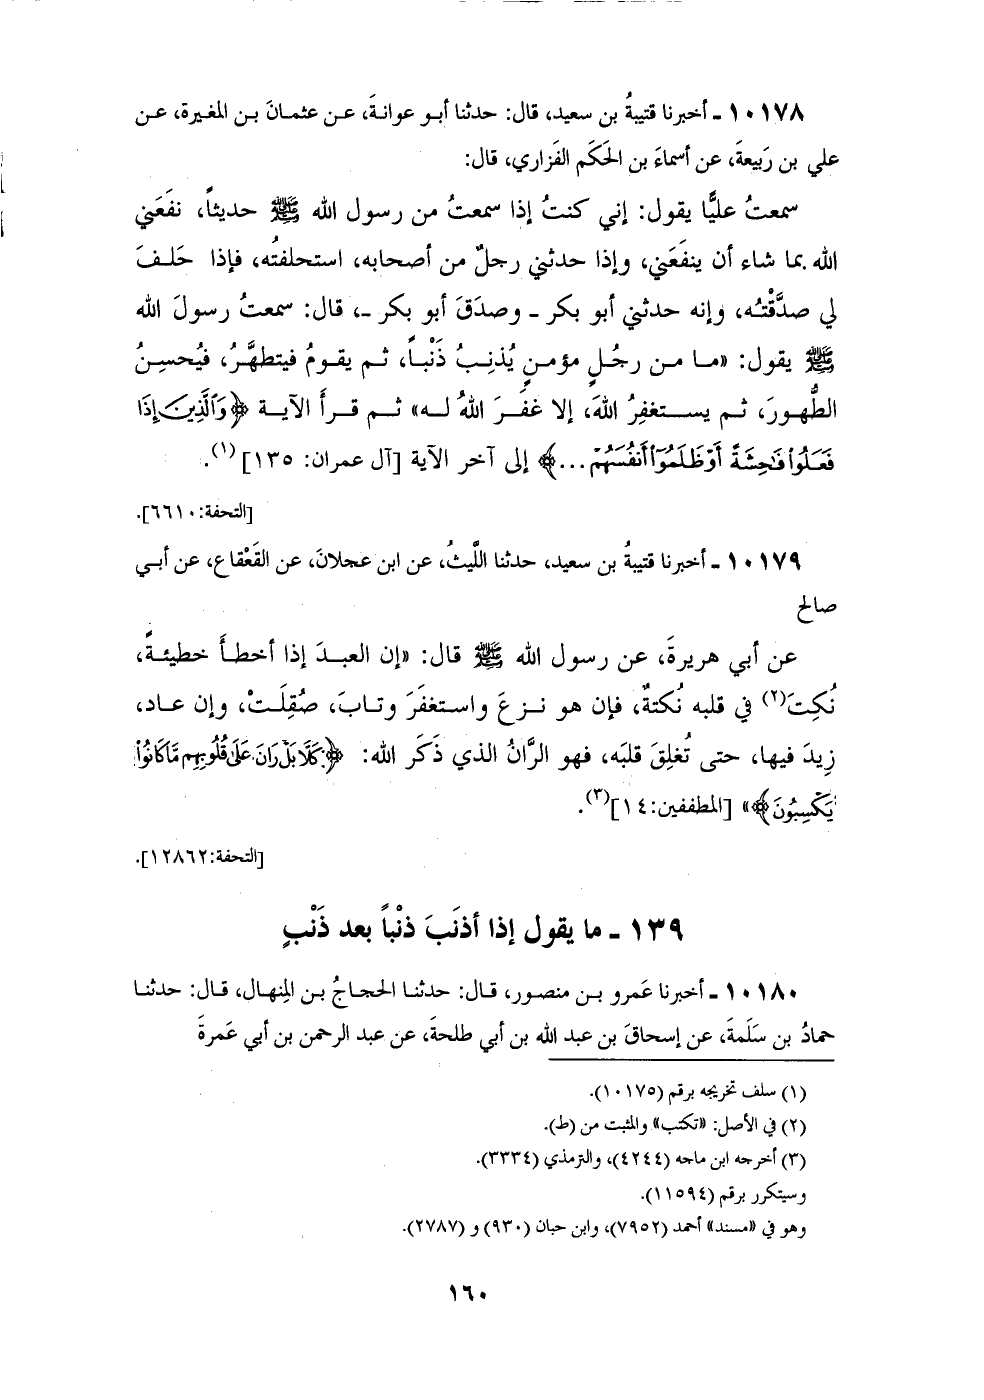 ١٠١٧٨ ـ أخبرنا قتيبةُ بن سعيد، قال: حدثنا أبو عوانةَ، عن عثمانَ بن المغيرة، عن
علي بن رَبيعةَ، عن أسماءَ بن الحَكَم الفَزاري، قال:
سمعتُ عليًّا يقول: إني كنتُ إذا سمعتُ من رسول الله ﷺ حديثاً، نفَعَني
الله بما شاء أن ينفَعَني، وإذا حدثني رجلٌ من أصحابه، استحلفتُه، فإذا حَلفَ
لي صدَّقْتُه، وإنه حدثني أبو بكر ـ وصدَقَ أبو بكر ـ، قال: سمعتُ رسولَ الله
ﷺ يقول: «ما من رجُلٍ مؤمنٍ يُذنِبُ ذَنْباً، ثم يقومُ فيتطهَّرُ، فيُحسِنُ
الطُّهورَ، ثم يستغفِرُ اللهَ، إلا غفَرَ اللهُ له» ثم قرأ الآية ﴿وَالَّذِينَ إِذَا
فَعَلُوا فَاحِشَةً أَوْ ظَلَمُوا أَنفُسَهُمْ...﴾ إلى آخر الآية [آل عمران: ١٣٥] (١).
[التحفة: ٦٦١٠].
١٠١٧٩ ـ أخبرنا قتيبةُ بن سعيد، حدثنا اللَّيثُ، عن ابن عجلانَ، عن القَعْقاع، عن أبي
صالح
عن أبي هريرةَ، عن رسول الله ﷺ قال: «إن العبدَ إذا أخطأَ خطيئةً،
نُكِتَ(٢) في قلبه نُكتةٌ، فإن هو نزعَ واستغفَرَ وتابَ، صُقِلَتْ، وإن عاد،
زِيدَ فيها، حتى تُغلِقَ قلبَه، فهو الرَّانُ الذي ذَكَر الله: ﴿كَلَّا بَلْ رَانَ عَلَى قُلُوبِهِم مَّا كَانُوا
يَكْسِبُونَ﴾» [المطففين: ١٤](٣).
[التحفة: ١٢٨٦٢].
١٣٩ ـ ما يقول إذا أذنَبَ ذنْباً بعد ذَنْبٍ
١٠١٨٠ ـ أخبرنا عَمرو بن منصور، قال: حدثنا الحجاجُ بن المِنهال، قال: حدثنا
حمادُ بن سَلَمةَ، عن إسحاقَ بن عبد الله بن أبي طلحةَ، عن عبد الرحمن بن أبي عَمرةَ
(١) سلف تخريجه برقم (١٠١٧٥).
(٢) في الأصل: «تكتب» والمثبت من (ط).
(٣) أخرجه ابن ماجه (٤٢٤٤)، والترمذي (٣٣٣٤).
وسيتكرر برقم (١١٥٩٤).
وهو في «مسند» أحمد (٧٩٥٢)، وابن حبان (٩٣٠) و (٢٧٨٧).
١٦٠